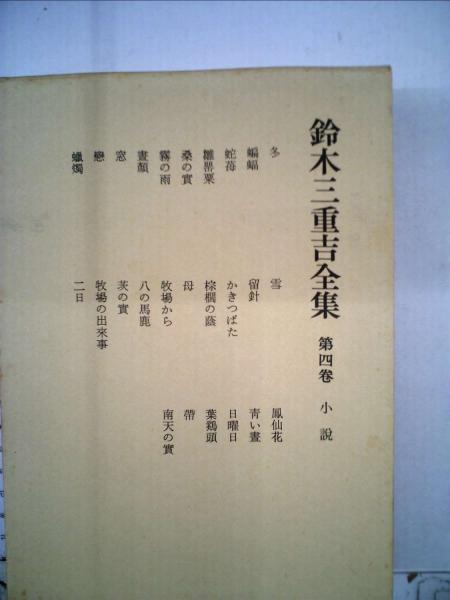 鈴木三重吉全集 第四卷 小說
冬 雪 鳳仙花
蝙蝠 留針 靑い晝
蛇莓 かきつばた 日曜日
雛罌粟 棕櫚の蔭 葉鷄頭
桑の實 母 帶
霧の雨 牧場から 南天の實
晝顏 八の馬鹿
窓 茨の實
戀 牧場の出來事
蠟燭 二日